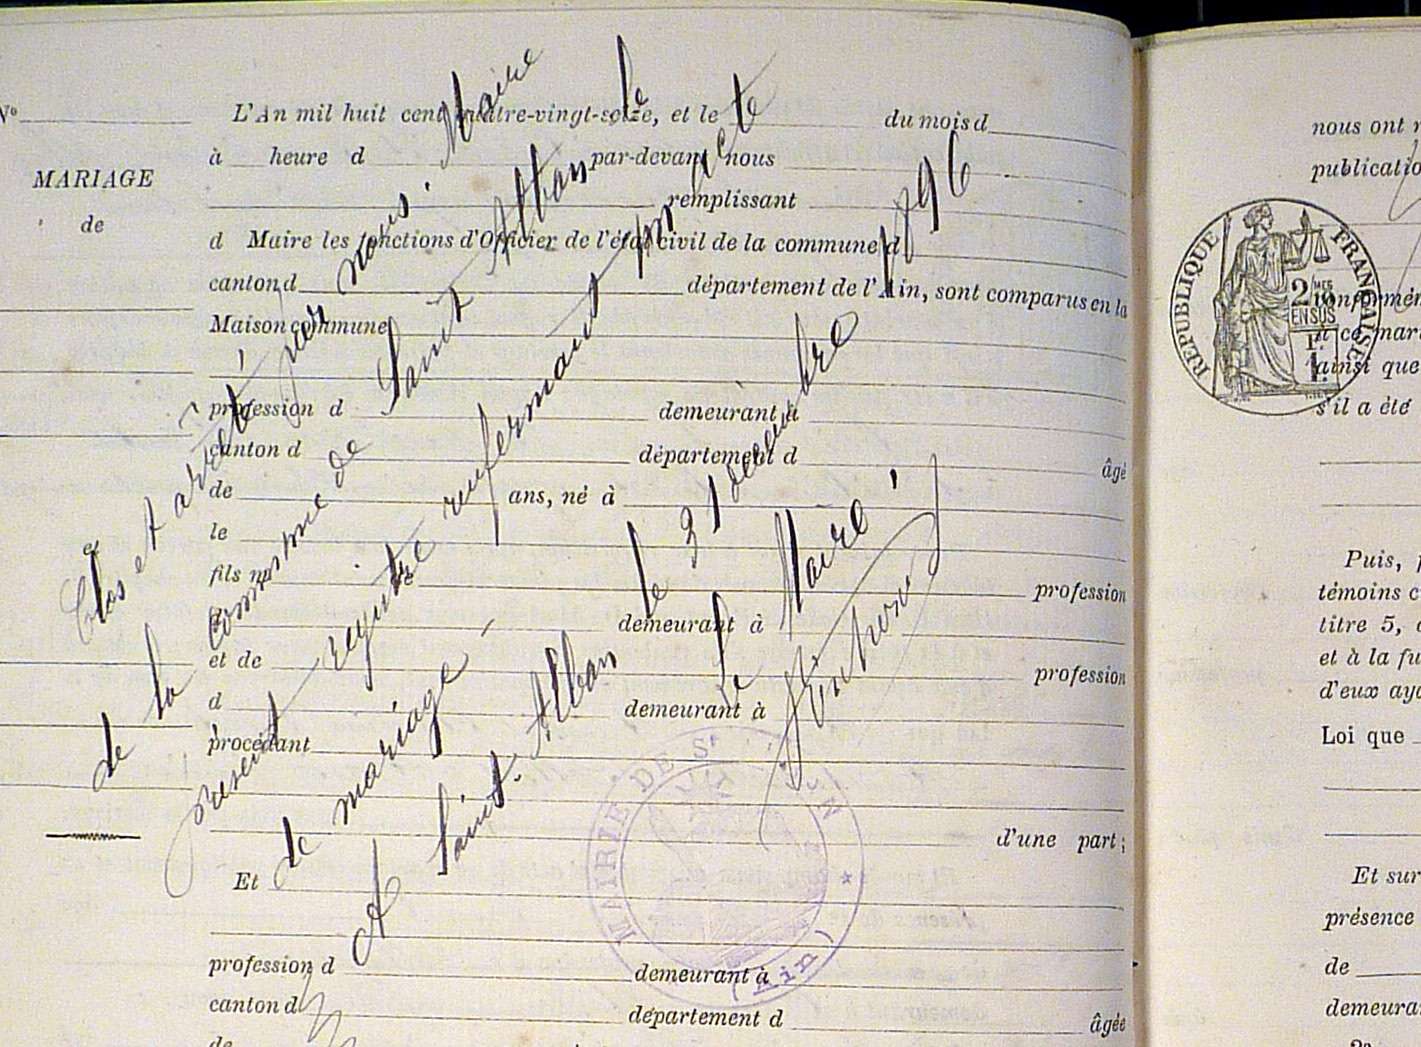 N°
MARIAGE
de
et
L'An mil huit cent quatre-vingt-seize, et le du mois d
à heure d par-devant nous
remplissant
d Maire les fonctions d'Officier de l'état civil de la commune d
canton d département de l'Ain, sont comparus en la
Maison commune
profession d demeurant à
canton d département d âgé
de ans, né à
le
fils m
profession
demeurant à
et de profession
d demeurant à
procédant
d'une part;
Et
profession d demeurant à
canton d département d âgée
de
Clos et arrêté par nous. Maire
de la commune de Saint Alban le
présent registre renfermant un acte
de mariage
A Saint-Alban le 31 décembre 1896
Le Maire
MAIRIE DE ST
(Ain)
nous ont
publicatio
REPUBLIQUE FRANÇAISE
2 MES
10
EN SUS
1
ainsi que
s'il a été
Puis,
témoins
titre 5,
et à la fu
d'eux aya
Loi que
Et sur
présence
de
demeura